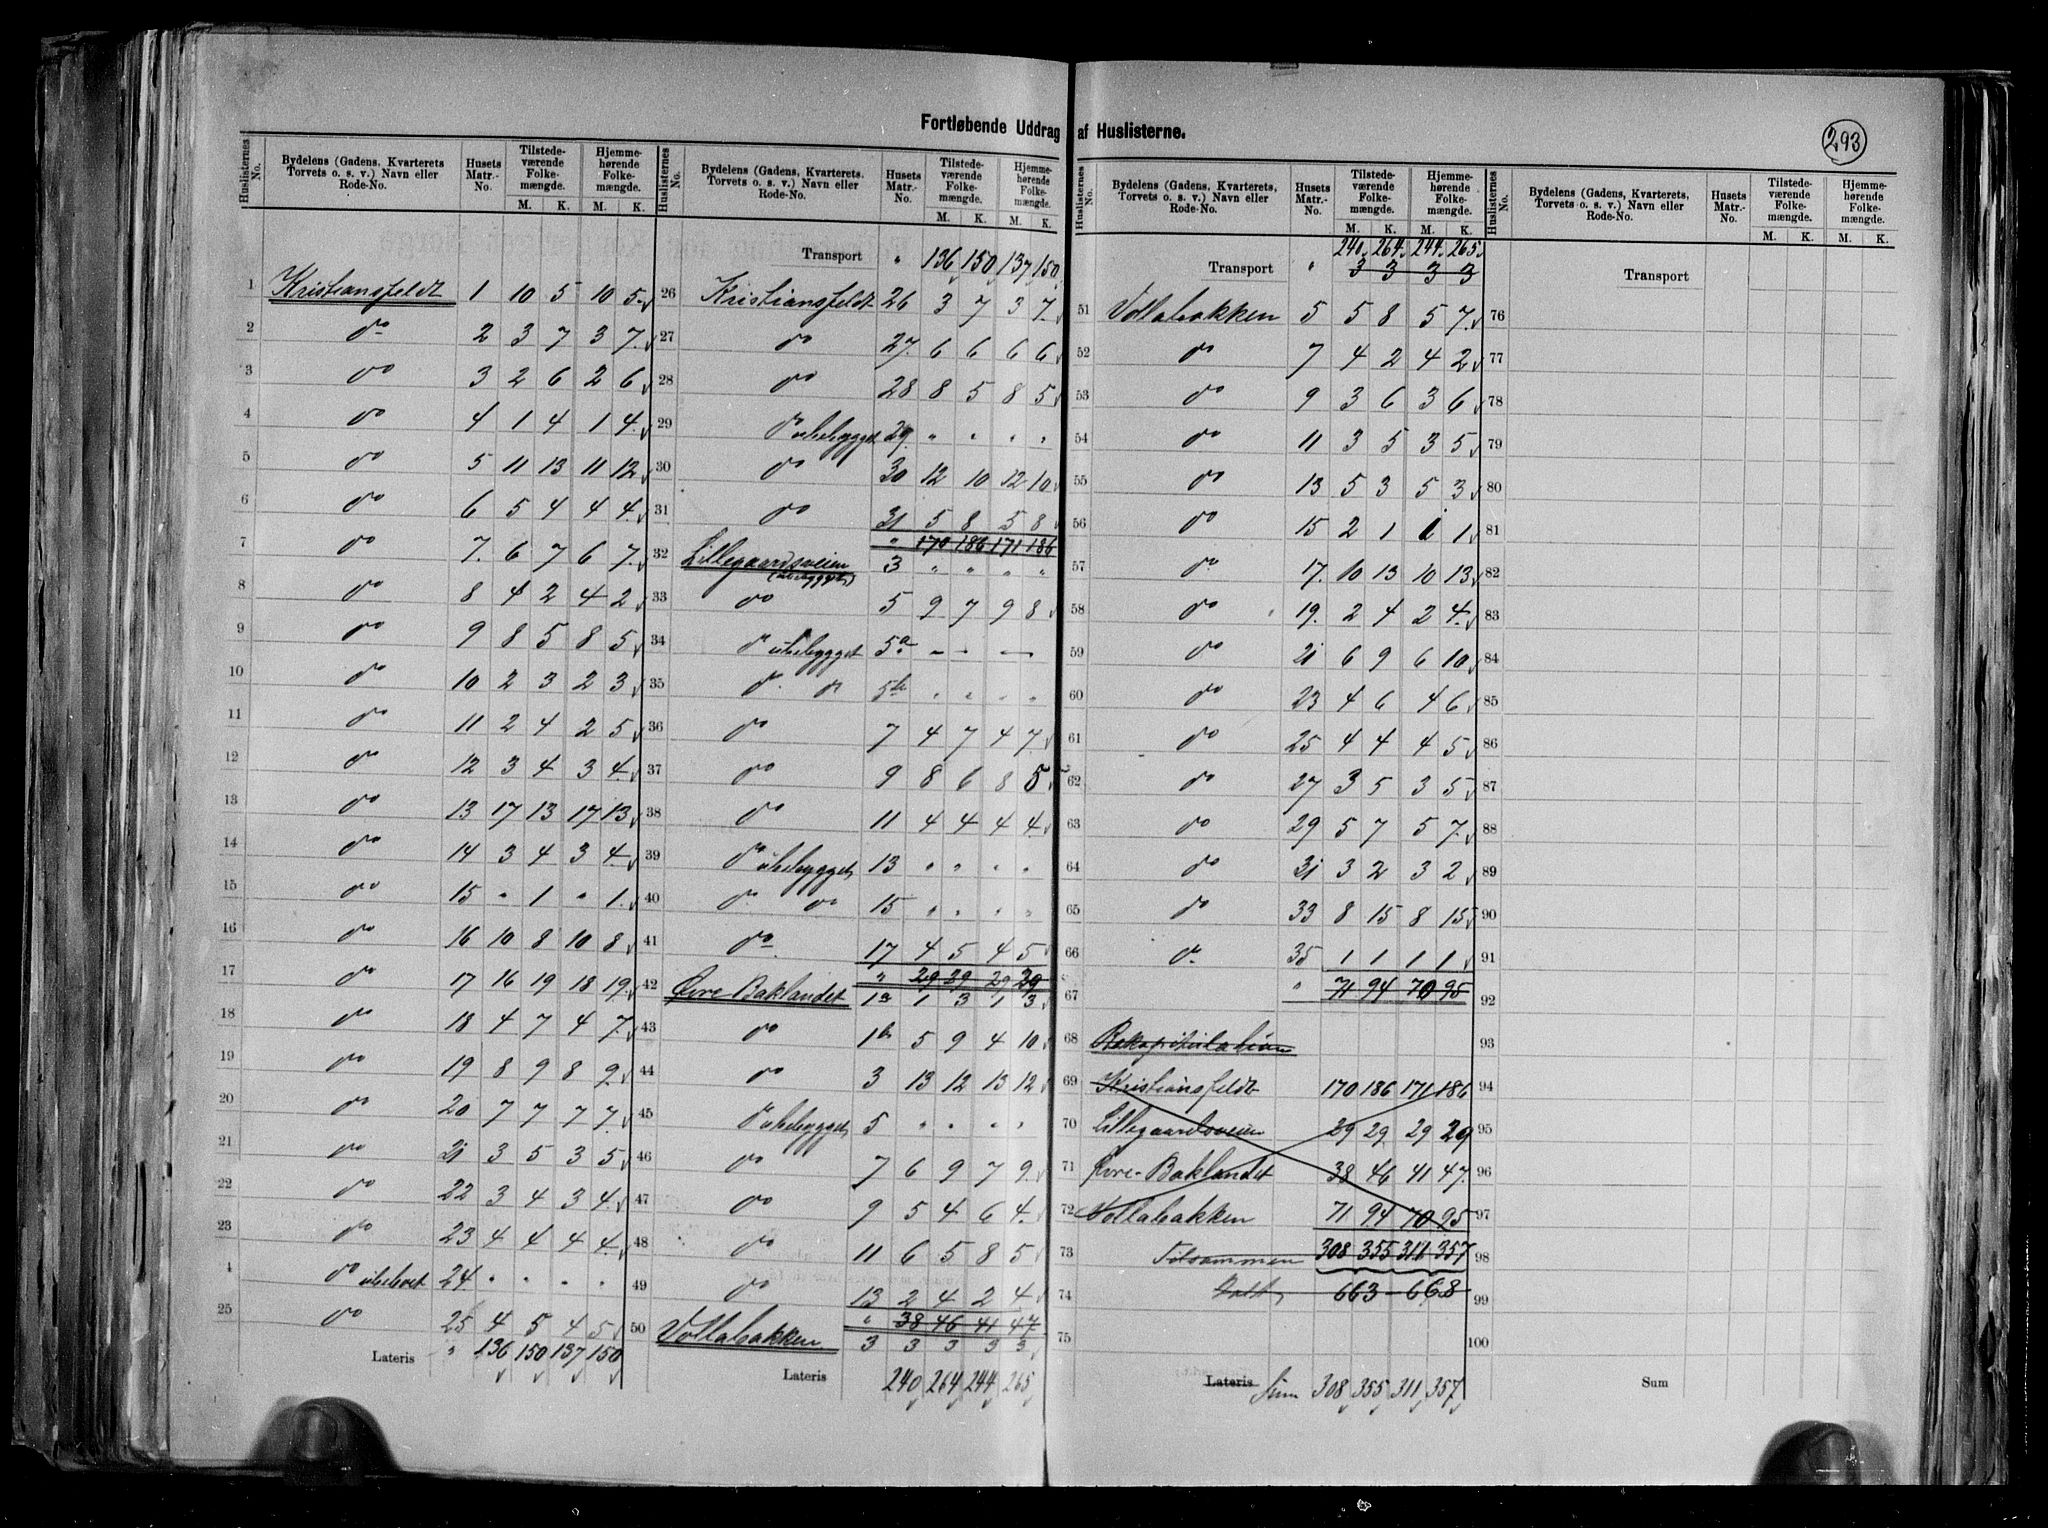 Fortløbende Uddrag af Huslisterne.
293
Huslisternes No. | Bydelens (Gadens, Kvarterets Torvets o. s. v.) Navn eller Rode-No. | Husets Matr.-No. | Tilstedeværende Folkemængde. M. K. | Hjemmehørende Folkemængde. M. K.
1 Kristiansfeldt 1 10 5 10 5
2 do 2 3 7 3 7
3 do 3 2 6 2 6
4 do 4 1 4 1 4
5 do 5 11 13 11 12
6 do 6 5 4 4 4
7 do 7 6 7 6 7
8 do 8 4 2 4 2
9 do 9 8 5 8 5
10 do 10 2 3 2 3
11 do 11 2 4 2 5
12 do 12 3 4 3 4
13 do 13 17 13 17 13
14 do 14 3 4 3 4
15 do 15 " 1 " 1
16 do 16 10 8 10 8
17 do 17 16 19 18 19
18 do 18 4 7 4 7
19 do 19 8 9 8 9
20 do 20 7 7 7 7
21 do 21 3 5 3 5
22 do 22 3 4 3 4
23 do 23 4 4 4 4
4 do ubeboet 24 " " " "
25 do 25 4 5 4 5
Lateris " 136 150 137 150
Huslisternes No. | Bydelens (Gadens, Kvarterets, Torvets o. s. v.) Navn eller Rode-No. | Husets Matr.-No. | Tilstedeværende Folkemængde. M. K. | Hjemmehørende Folkemængde. M. K.
Transport " 136 150 137 150
26 Kristiansfeldt 26 3 7 3 7
27 do 27 6 6 6 6
28 do 28 8 5 8 5
29 do ubebygget 29 " " " "
30 do 30 12 10 12 10
31 do 31 5 8 5 8
" 170 186 171 186
32 Lillegaardsveien (ubebygget) 3 " " " "
33 do 5 9 7 9 8
34 do ubebygget 5a - - -
35 do do 5b " " " "
36 do 7 4 7 4 7
37 do 9 8 6 8 5
38 do 11 4 4 4 4
39 do ubebygget 13 " " " "
40 do do 15 " " " "
41 do 17 4 5 4 5
" 29 29 29 29
42 Øvre Baklandet 1a 1 3 1 3
43 do 1b 5 9 4 10
44 do 3 13 12 13 12
45 do ubebygget 5 " " " "
46 do 7 6 9 7 9
47 do 9 5 4 6 4
48 do 11 6 5 8 5
49 do 13 2 4 2 4
" 38 46 41 47
50 Vollabakken 3 3 3 3 3
Lateris 240 264 244 265
Huslisternes No. | Bydelens (Gadens, Kvarterets, Torvets o. s. v.) Navn eller Rode-No. | Husets Matr.-No. | Tilstedeværende Folkemængde. M. K. | Hjemmehørende Folkemængde. M. K.
240 264 244 265
Transport " 3 3 3 3
51 Vollabakken 5 5 8 5 7
52 do 7 4 2 4 2
53 do 9 3 6 3 6
54 do 11 3 5 3 5
55 do 13 5 3 5 3
56 do 15 2 1 1 1
57 do 17 10 13 10 13
58 do 19 2 4 2 4
59 do 21 6 9 6 10
60 do 23 4 6 4 6
61 do 25 4 4 4 5
62 do 27 3 5 3 5
63 do 29 5 7 5 7
64 do 31 3 2 3 2
65 do 33 8 15 8 15
66 do 35 1 1 1 1
67 " 71 94 70 95
68 Rekapitulation
69 Kristiansfeldt 170 186 171 186
70 Lillegaardsveien 29 29 29 29
71 Øvre-Baklandet 38 46 41 47
72 Vollabakken 71 94 70 95
73 Tilsammen 308 355 311 357
74 663 - 668
75
Lateris Sum 308 355 311 357
Huslisternes No. | Bydelens (Gadens, Kvarterets, Torvets o. s. v.) Navn eller Rode-No. | Husets Matr.-No. | Tilstedeværende Folkemængde. M. K. | Hjemmehørende Folkemængde. M. K.
Transport
76
77
78
79
80
81
82
83
84
85
86
87
88
89
90
91
92
93
94
95
96
97
98
99
100
Sum